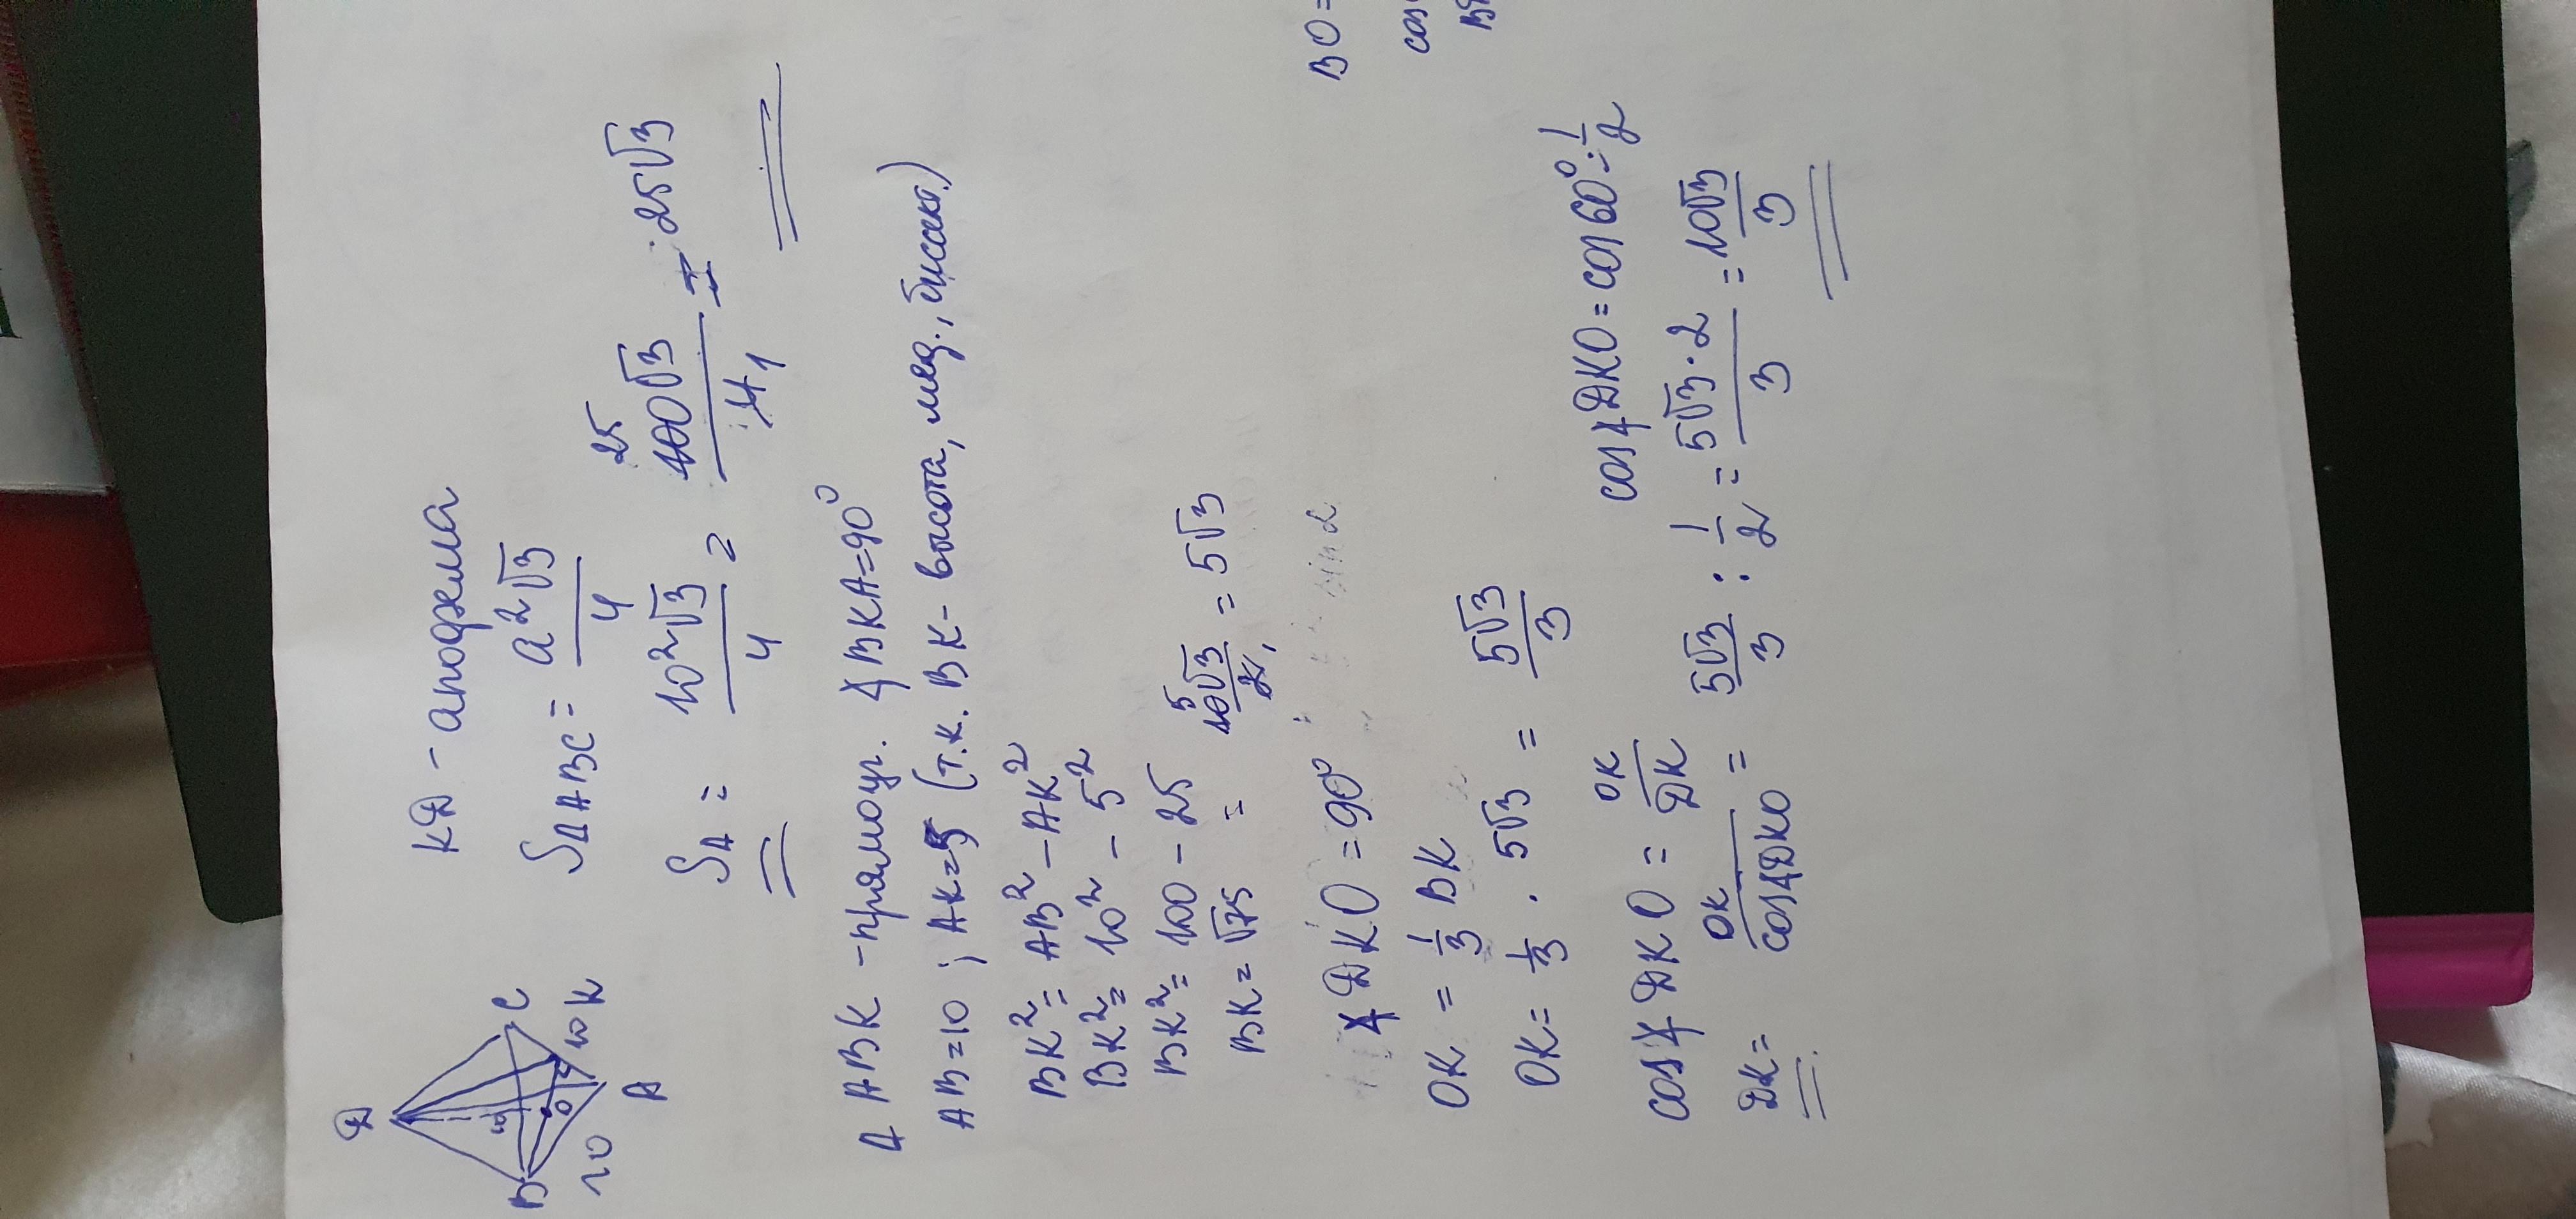 D
B
C
A
K
10
10
O
KD - апофема
S△ABC = a²√3/4
S△ = 10²√3/4 = 100√3/4 = 25√3
25
1
△ ABK - прямоуг. ∡BKA=90⁰
AB=10 ; AK=5 (т.к. BK- высота, мед., биссект.)
BK²= AB² - AK²
BK²= 10² - 5²
BK²= 100 - 25
BK= √75 = 10√3/2 = 5√3
5
1
∡ DKO = 90⁰
OK = 1/3 BK
OK= 1/3 · 5√3 = 5√3/3
cos∡ DKO = OK/DK
cos∡DKO= cos60⁰= 1/2
DK= OK/cos∡DKO = 5√3/3 : 1/2 = 5√3·2/3 = 10√3/3
BO=
cos